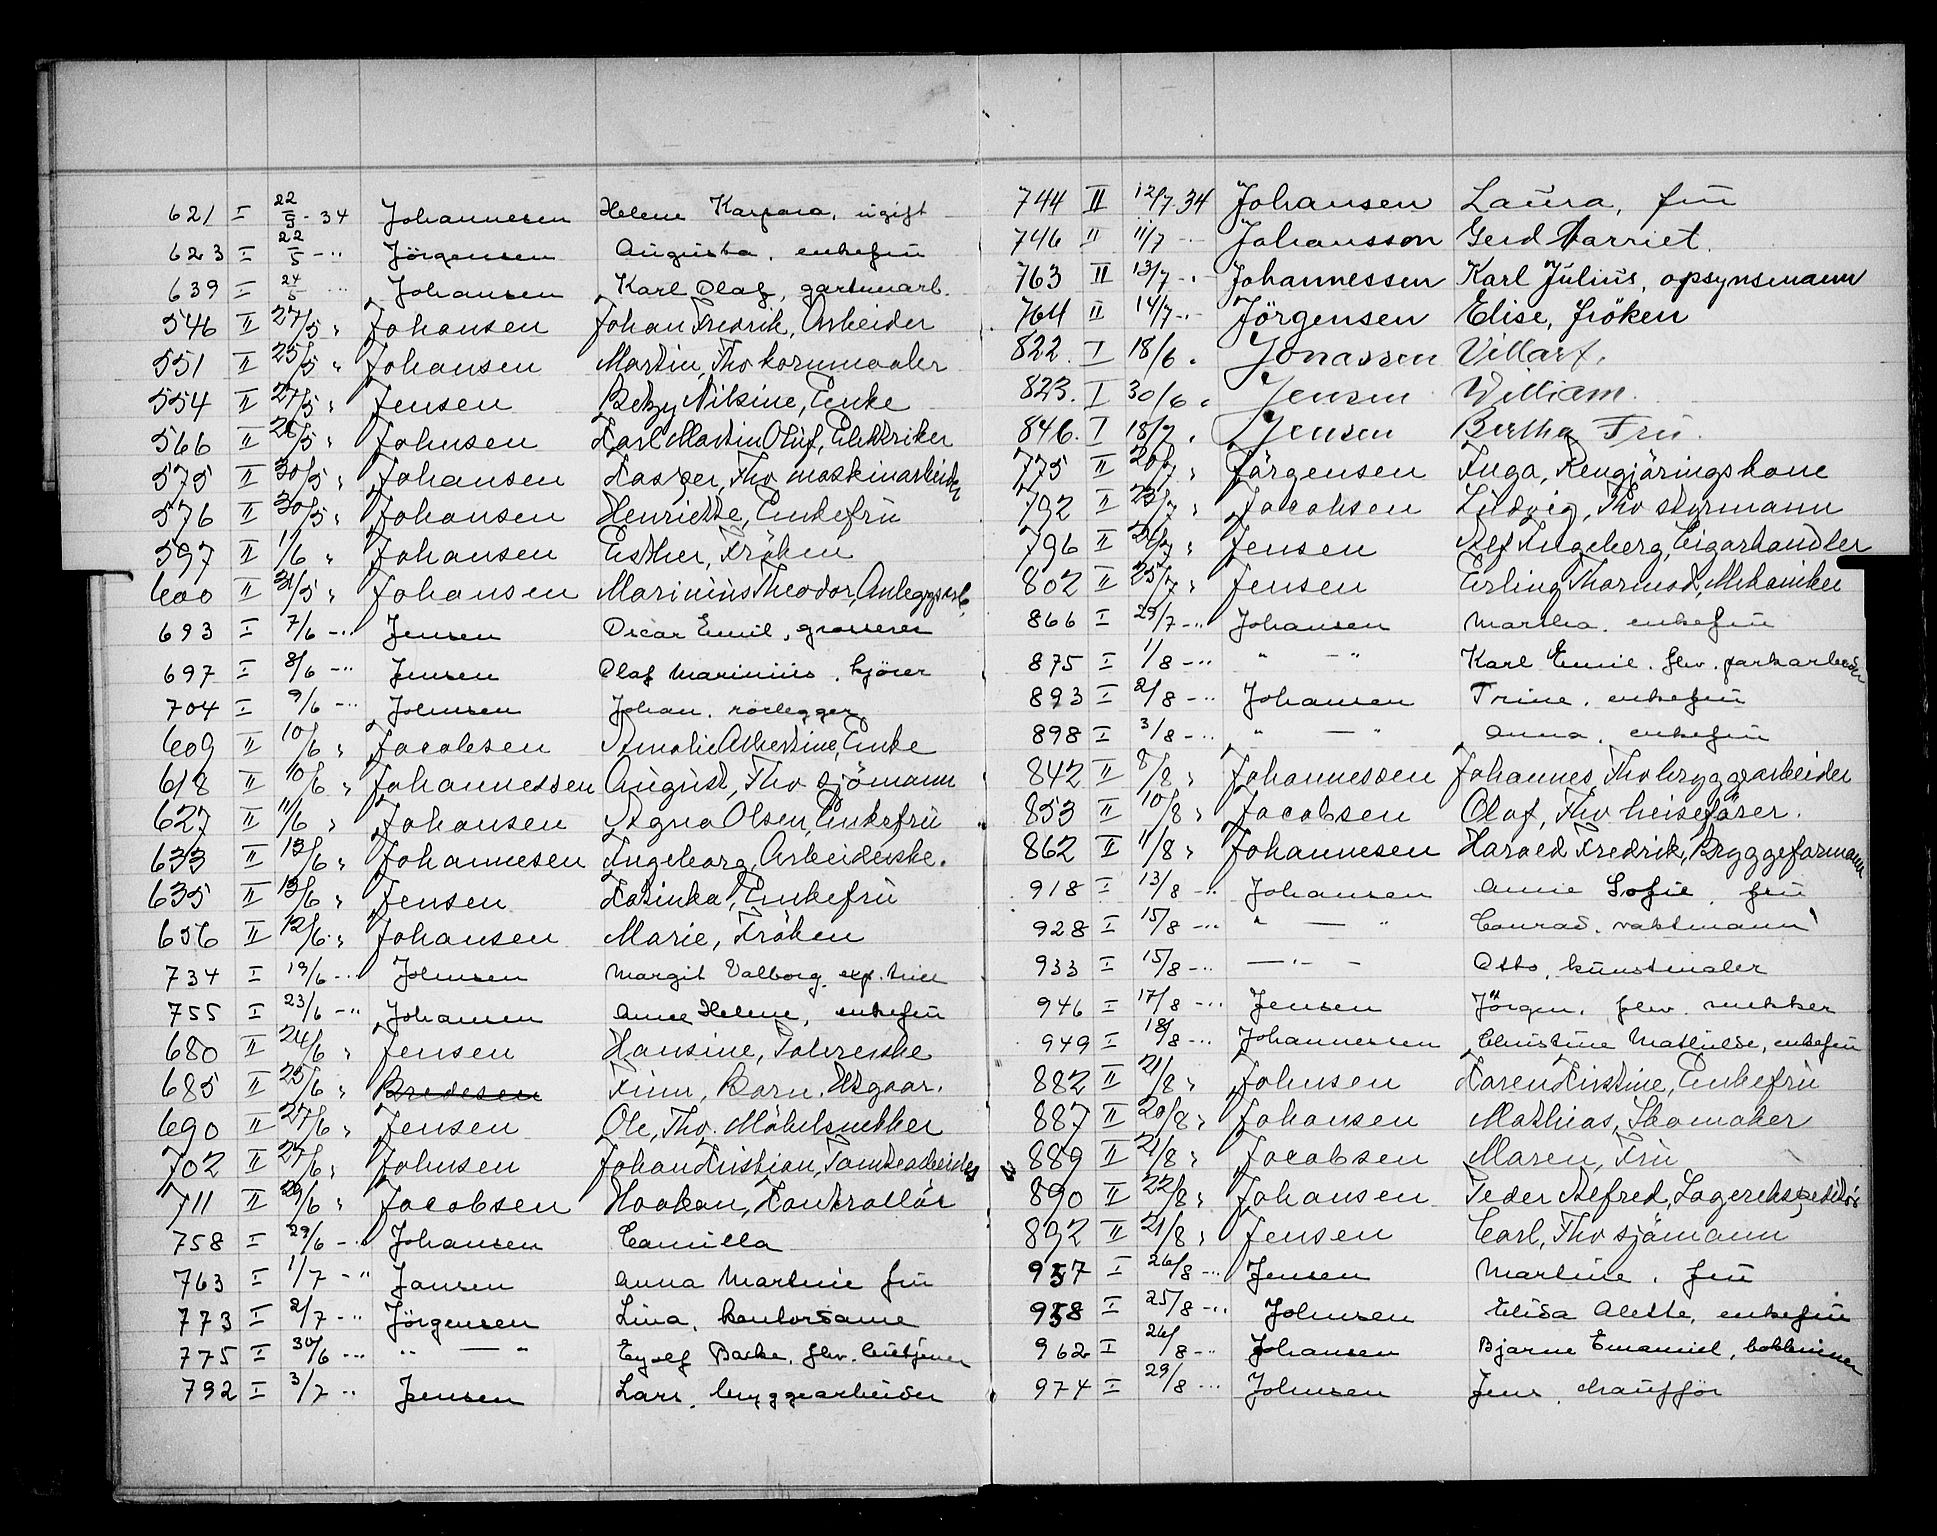 621 I 22/5-34 Johannesen Helene Kaspara, ugift
623 I 22/5 -" Jörgensen Augusta, enkefru
639 I 24/5 " Johansen Karl Olaf, gartnerarb.
546 II 27/5 " Johansen Johan Fredrik, Arbeider
551 II 25/5 " Johansen Martin, Fhv kornmaaler
554 II 27/5 " Jensen Betzy Nilsine, Enke
566 II 28/5 " Johnsen Karl Martin Oluf, Elektriker
575 II 30/5 " Johansen Kasper, Fhv maskinarbeider
576 II 30/5 " Johansen Henriette, Enkefru
597 II 1/6 " Johansen Esther, Fröken
600 II 31/5 " Johansen Marinius Theodor, Anlegsarb.
693 I 7/6 -" Jensen Oscar Emil, grosserer
697 I 8/6 -" Jensen Olaf Marinius, kjörer
704 I 9/6 -" Johnsen Johan, rörlegger
609 II 10/6 " Jacobsen Amalie Albertine, Enke
618 II 10/6 " Johannessen August, Fhv sjömann
627 II 11/6 " Johansen Agna Olsen, Enkefru
633 II 13/6 " Johannesen Ingeborg, Arbeiderske.
635 II 13/6 " Jensen Kasinka, Enkefru
656 II 12/6 " Johansen Marie, Fröken
734 I 19/6 -" Johnsen Margit Valborg,
755 I 23/6 -" Johansen Anne Helene, enkefru
680 II 24/6 " Jensen Hansine,
685 II 25/6 " Bredesen Finn, Barn.
690 II 27/6 " Jensen Ole, Fhv. Möbelsnekker
702 II 27/6 " Johnsen Johan Kristian, Tomtearbeider
711 II 29/6 " Jacobsen Haakon, Kontrollör
758 I 29/6 -" Johansen Camilla
763 I 1/7 -" Jansen Anna Martine fru
773 I 2/7 -" Jörgensen Lina, kontordame
775 I 30/6 -" " — " Eyolf Backe, fhv.
792 I 3/7 -" Jensen Lars, bryggearbeider
744 II 12/7.34 Johansen Laura, fru
746 II 11/7 -" Johansson Gerd Harriet.
763 II 13/7 -" Johannessen Karl Julius, opsynsmann
764 II 14/7 -" Jörgensen Elise, fröken
822. I 18/6 " Jonassen Villarf.
823. I 30/6 " Jensen William.
846. I 18/7 " Jensen Bertha Fru.
775 II 20/7 " Jörgensen Inga, Rengjöringskone
792 II 23/7 " Jacobsen Ludvig, Fhv styrmann
796 II 24/7 " Jensen Alf Ingeberg, Cigarhandler
802 II 25/7 " Jensen Erling Thormod, Mekaniker
866 I 29/7 -" Johansen Martha, enkefru
875 I 1/8 -" " — " Karl Emil, fhv. parkarbeider
893 I 2/8 -" Johansen Trine, enkefru
898 I 3/8 -" " — " Anna, enkefru
842 II 8/8 " Johannessen Johannes, Fhv bryggearbeider
853 II 10/8 " Jacobsen Olaf, Fhv heiseförer.
862 II 11/8 " Johannesen Harald Fredrik, Bryggeformann
918 I 13/8 -" Johansen Anne Sofie, fru
928 I 15/8 -" " — " Conrad, vaktmann
933 I 15/8 -" — " — Otto, kunstmaler
946 I 17/8 -" Jensen Jörgen, fhv. snekker
949 I 18/8 -" Johannessen Christine Mathilde, enkefru
882 II 21/8 " Johnsen Karen Kirstine, Enkefru
887 II 20/8 " Johansen Mathias, Skomaker
889 II 21/8 " Jacobsen Maren, Fru
890 II 22/8 " Johansen Peder Alfred, Lagerekspeditör
892 II 21/8 " Jensen Carl, Fhv sjömann
957 I 26/8 -" Jensen Martine, fru
958 I 25/8 -" Johnsen Elida Alette, enkefru
962 I 26/8 -" Johansen Bjarne Emanuel, bokbinner
974 I 29/8 -" Johnsen Jens, chaufför